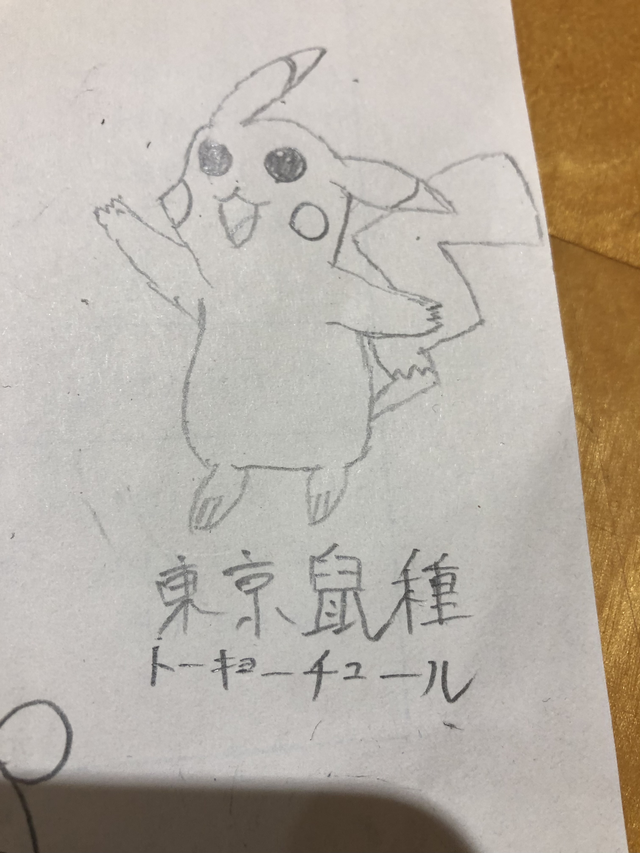 東京鼠種
トーキョーチュール